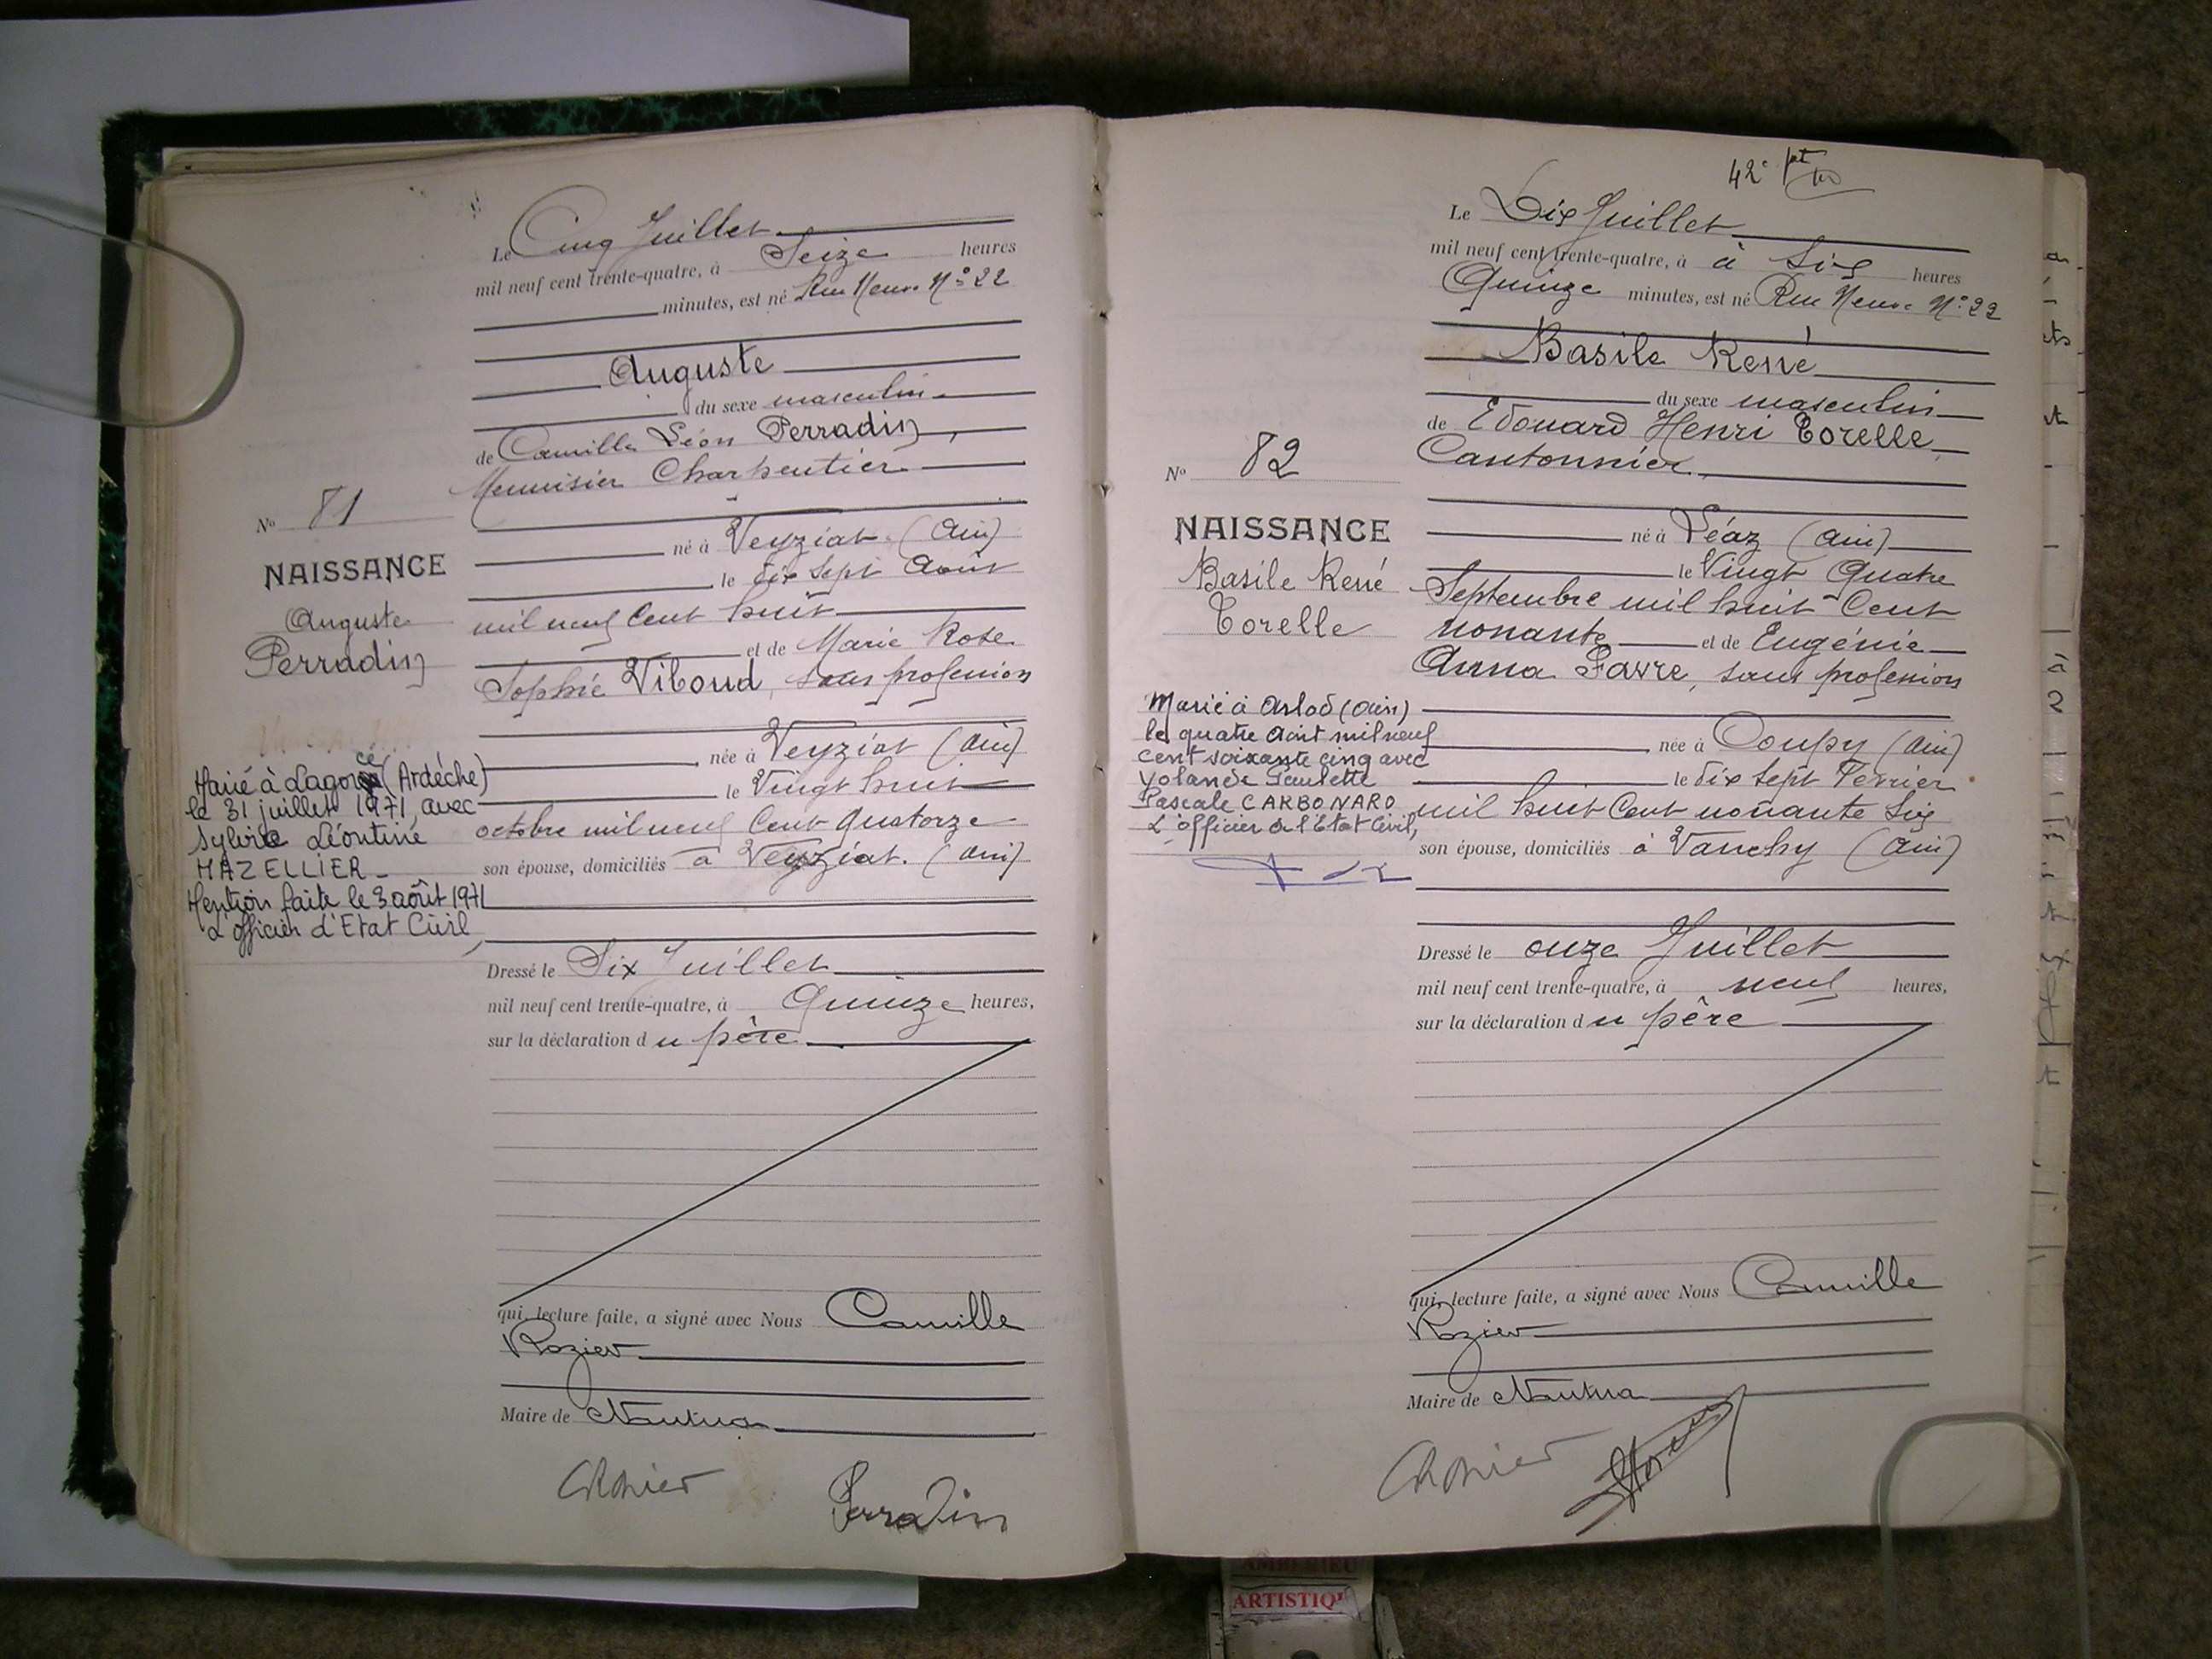 Le Cinq Juillet
mil neuf cent trente-quatre, à Seize heures
minutes, est né Rue Neuve N° 22
Auguste
du sexe masculin
de Camille Léon Perradin,
Menuisier Charpentier
N° 81
né à Veyziat (Ain)
NAISSANCE
le dix sept Août
Auguste
Perradin
mil neuf Cent huit
et de Marie Rose
Sophie Viboud, sans profession
née à Veyziat (Ain)
le Vingt huit
octobre mil neuf Cent Quatorze
son épouse, domiciliés à Veyziat. (Ain)
Marié à Lagorce (Ardèche)
le 31 juillet 1971, avec
Sylvie Léontine
MAZELLIER
Mention faite le 3 août 1971
L'officier d'Etat Civil,
Dressé le Six Juillet
mil neuf cent trente-quatre, à Quinze heures,
sur la déclaration du père
qui, lecture faite, a signé avec Nous Camille
Rozier
Maire de Nantua
CRozier
Perradin
42e
Le Dix Juillet
mil neuf cent trente-quatre, à à Six heures
Quinze minutes, est né Rue Neuve N° 22
Basile René
du sexe masculin
de Edouard Henri Torelle
Cantonnier
N° 82
NAISSANCE
Basile René
Torelle
né à Léaz (Ain)
le Vingt Quatre
Septembre mil huit Cent
nonante et de Eugénie
Anna Favre, sans profession
née à Coupy (Ain)
le dix sept Février
mil huit Cent nonante Six
son épouse, domiciliés à Vanchy (Ain)
Marié à Arlod (Ain)
le quatre Août mil neuf
cent soixante cinq avec
Yolande Paulette
Pascale CARBONARO
L'officier de l'Etat Civil,
Dressé le onze Juillet
mil neuf cent trente-quatre, à neuf heures,
sur la déclaration du père
qui, lecture faite, a signé avec Nous Camille
Rozier
Maire de Nantua
CRozier
ARTISTIQ